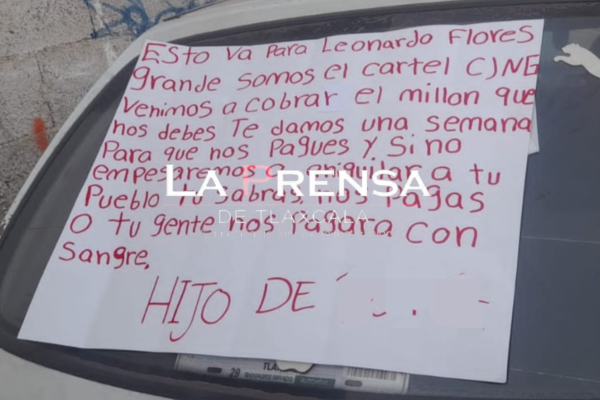 Esto va Para Leonardo Flores
Grande somos el cartel CJNG
Venimos a cobrar el millon que
nos debes Te damos una semana
Para que nos Pagues y Si no
empesaremos a anigular a tu
Pueblo tu sabras, nos Pagas
O tu gente nos Pagara con
Sangre,
HIJO DE
LA PRENSA
DE TLAXCALA